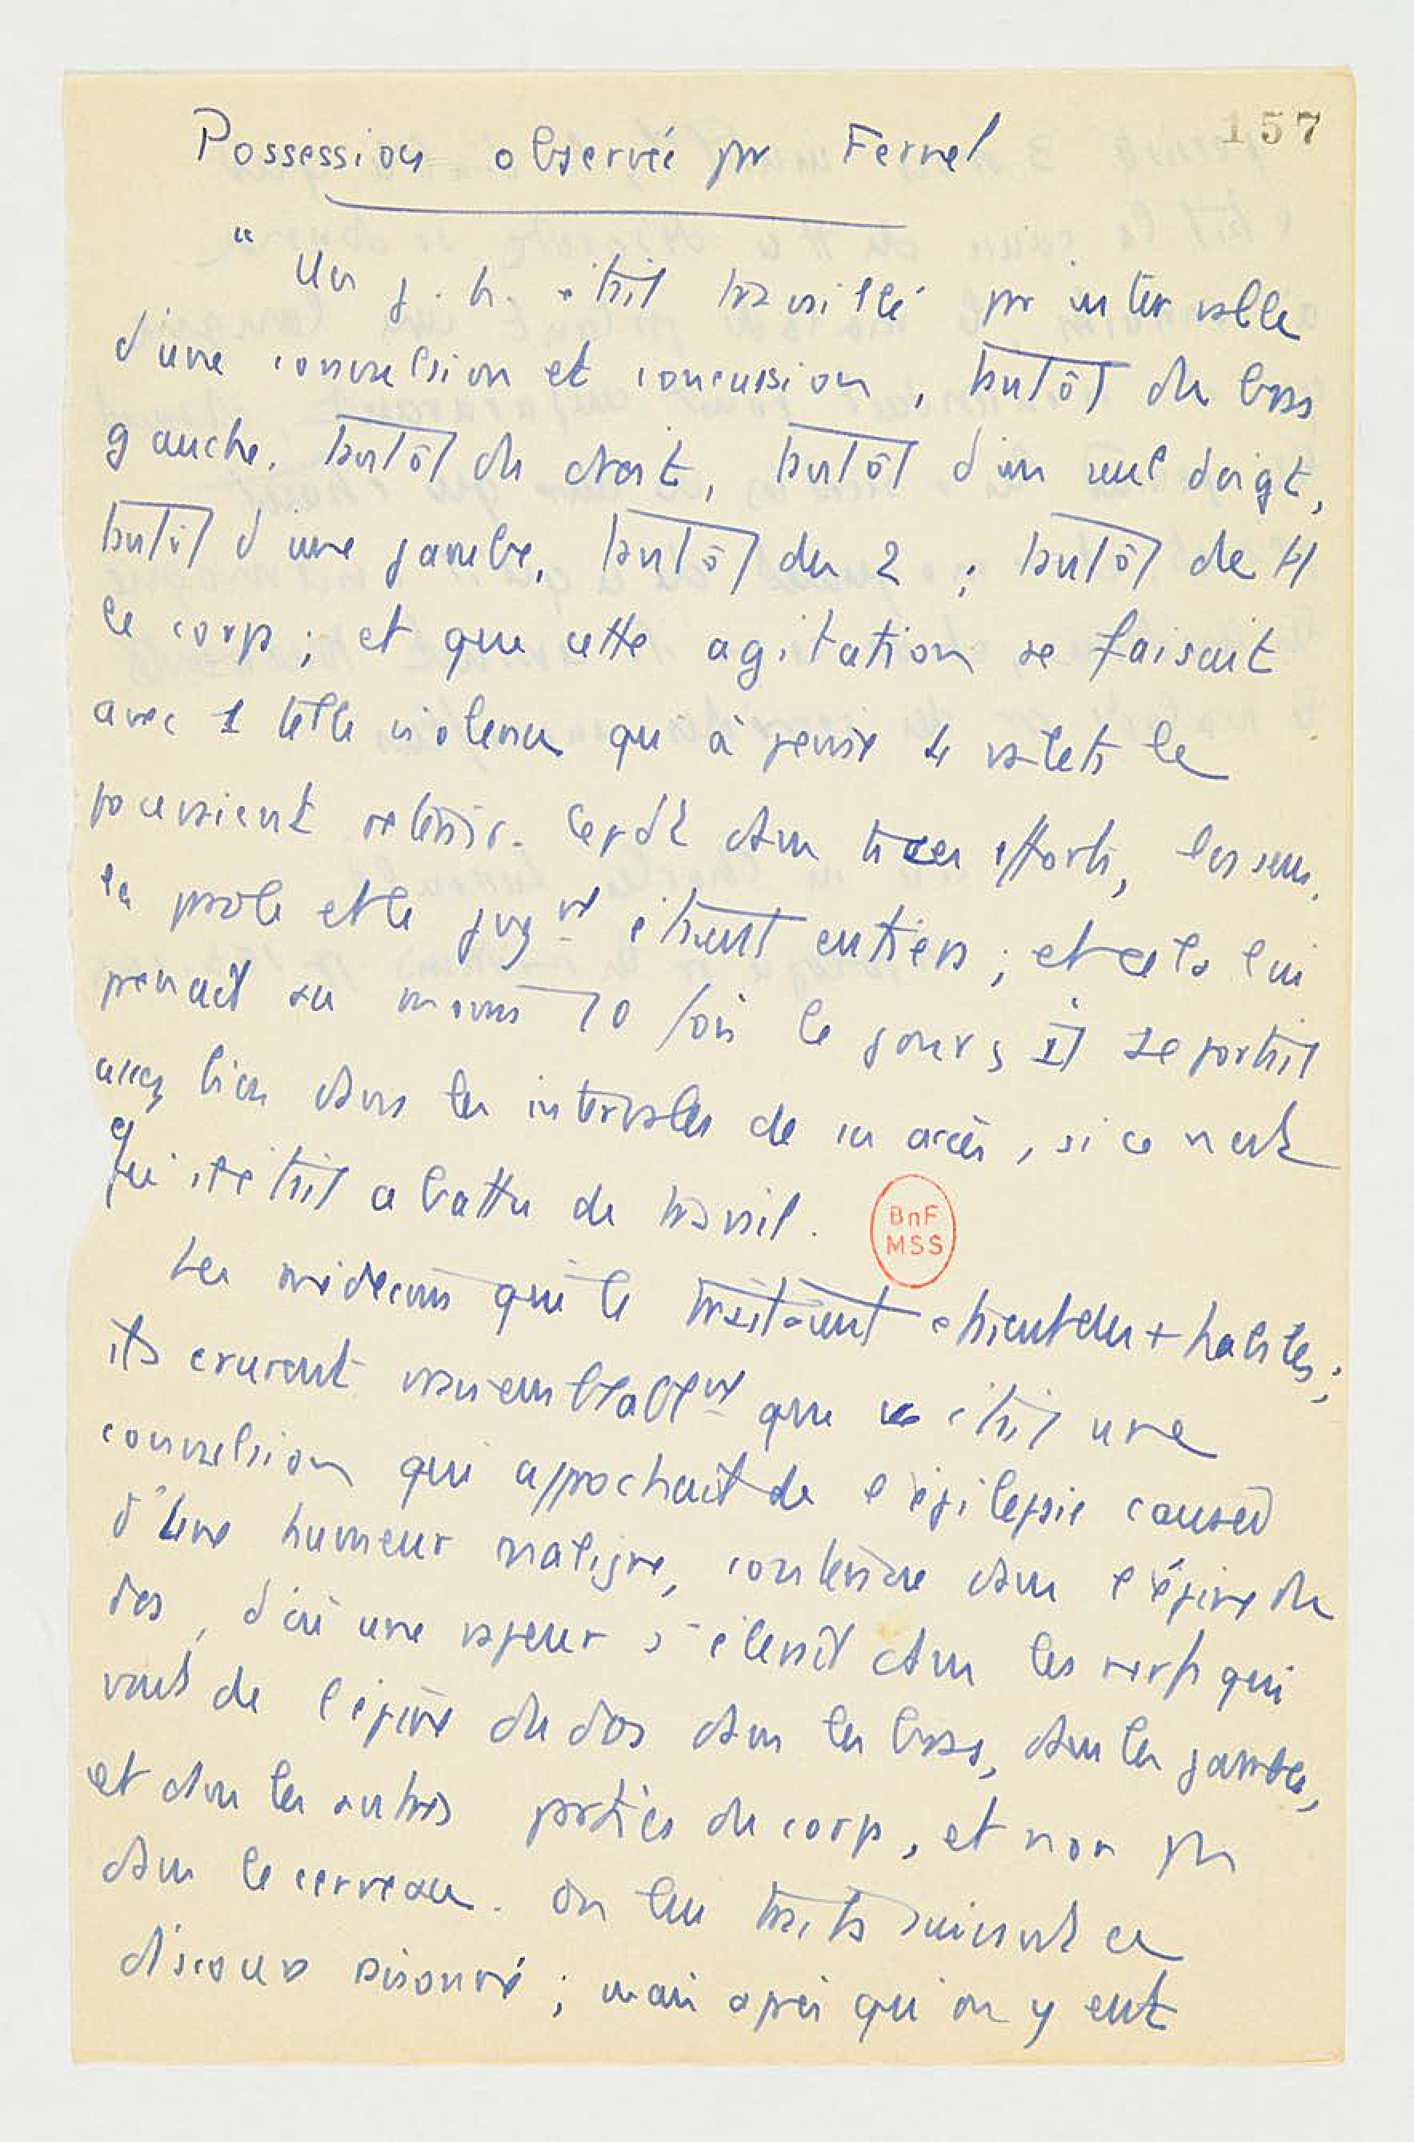 157
Possession observée par Fernel
" Un j. h. était travaillé par intervalle
d'une convulsion et concussion, tantôt du bras
gauche, tantôt du droit, tantôt d'un seul doigt,
tantôt d'une jambe, tantôt des 2 ; tantôt de tt
le corps ; et que cette agitation se faisait
avec 1 telle violence qu'à peine 4 valets le
pouvaient retenir. Cepdt dans ts ces efforts, les sens,
la parole et le jugnt étaient entiers ; et cela lui
prenait au moins 10 fois le jour ; Il se portait
assez bien dans les intervalles de ses accès, si ce n'est
qu'il était abattu du travail.
BnF
MSS
Les médecins qui le traitaient étaient des + habiles ;
ils crurent vraisemblablnt que ce était une
convulsion qui approchait de l'épilepsie causée
d'une humeur maligne, contenue dans l'épine du
dos, d'où une vapeur s'élevait dans les nerfs qui
vont de l'épine du dos dans les bras, dans les jambes,
et dans les autres parties du corps, et non pas
dans le cerveau. On le traita suivant ce
discours raisonné ; mais après qu'on y eut